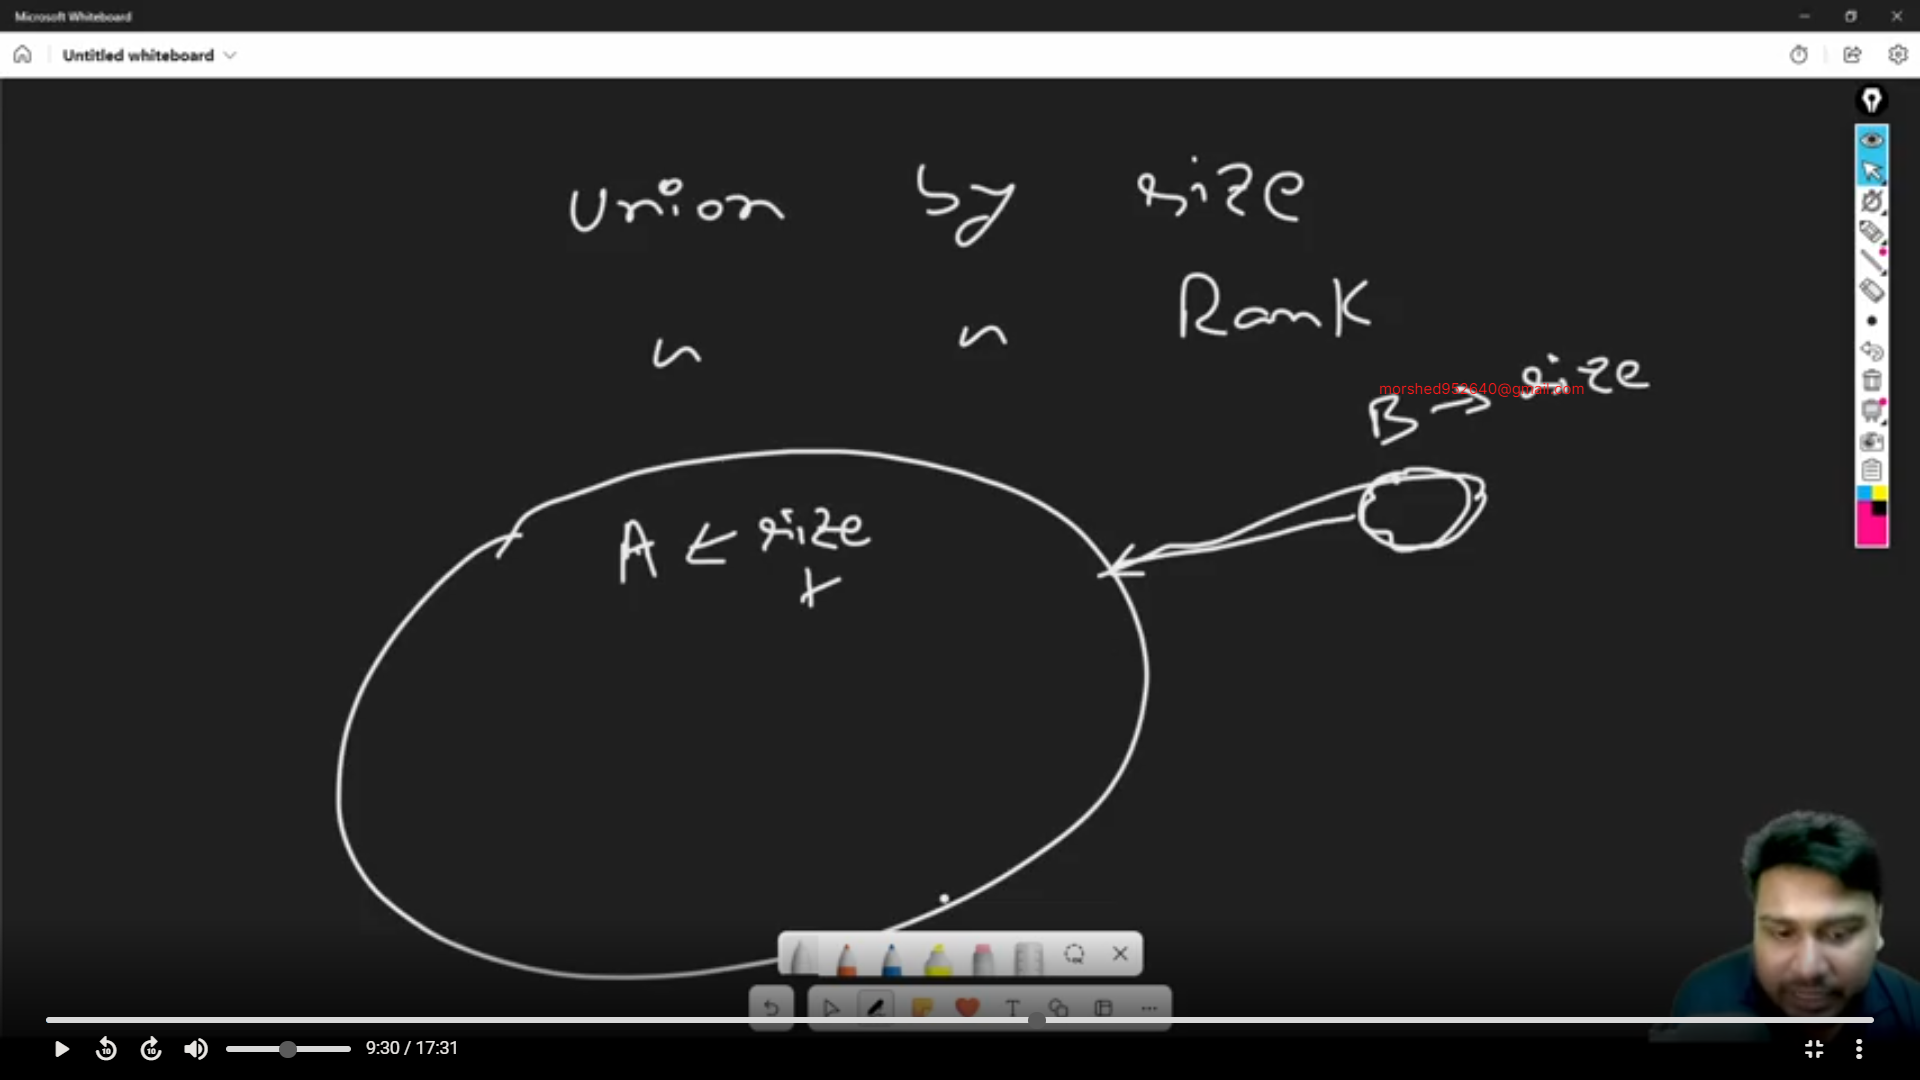 Microsoft Whiteboard
Untitled whiteboard
Union by size
" " Rank
morshed952640@gmail.com
B → size
A ← size
+
9:30 / 17:31